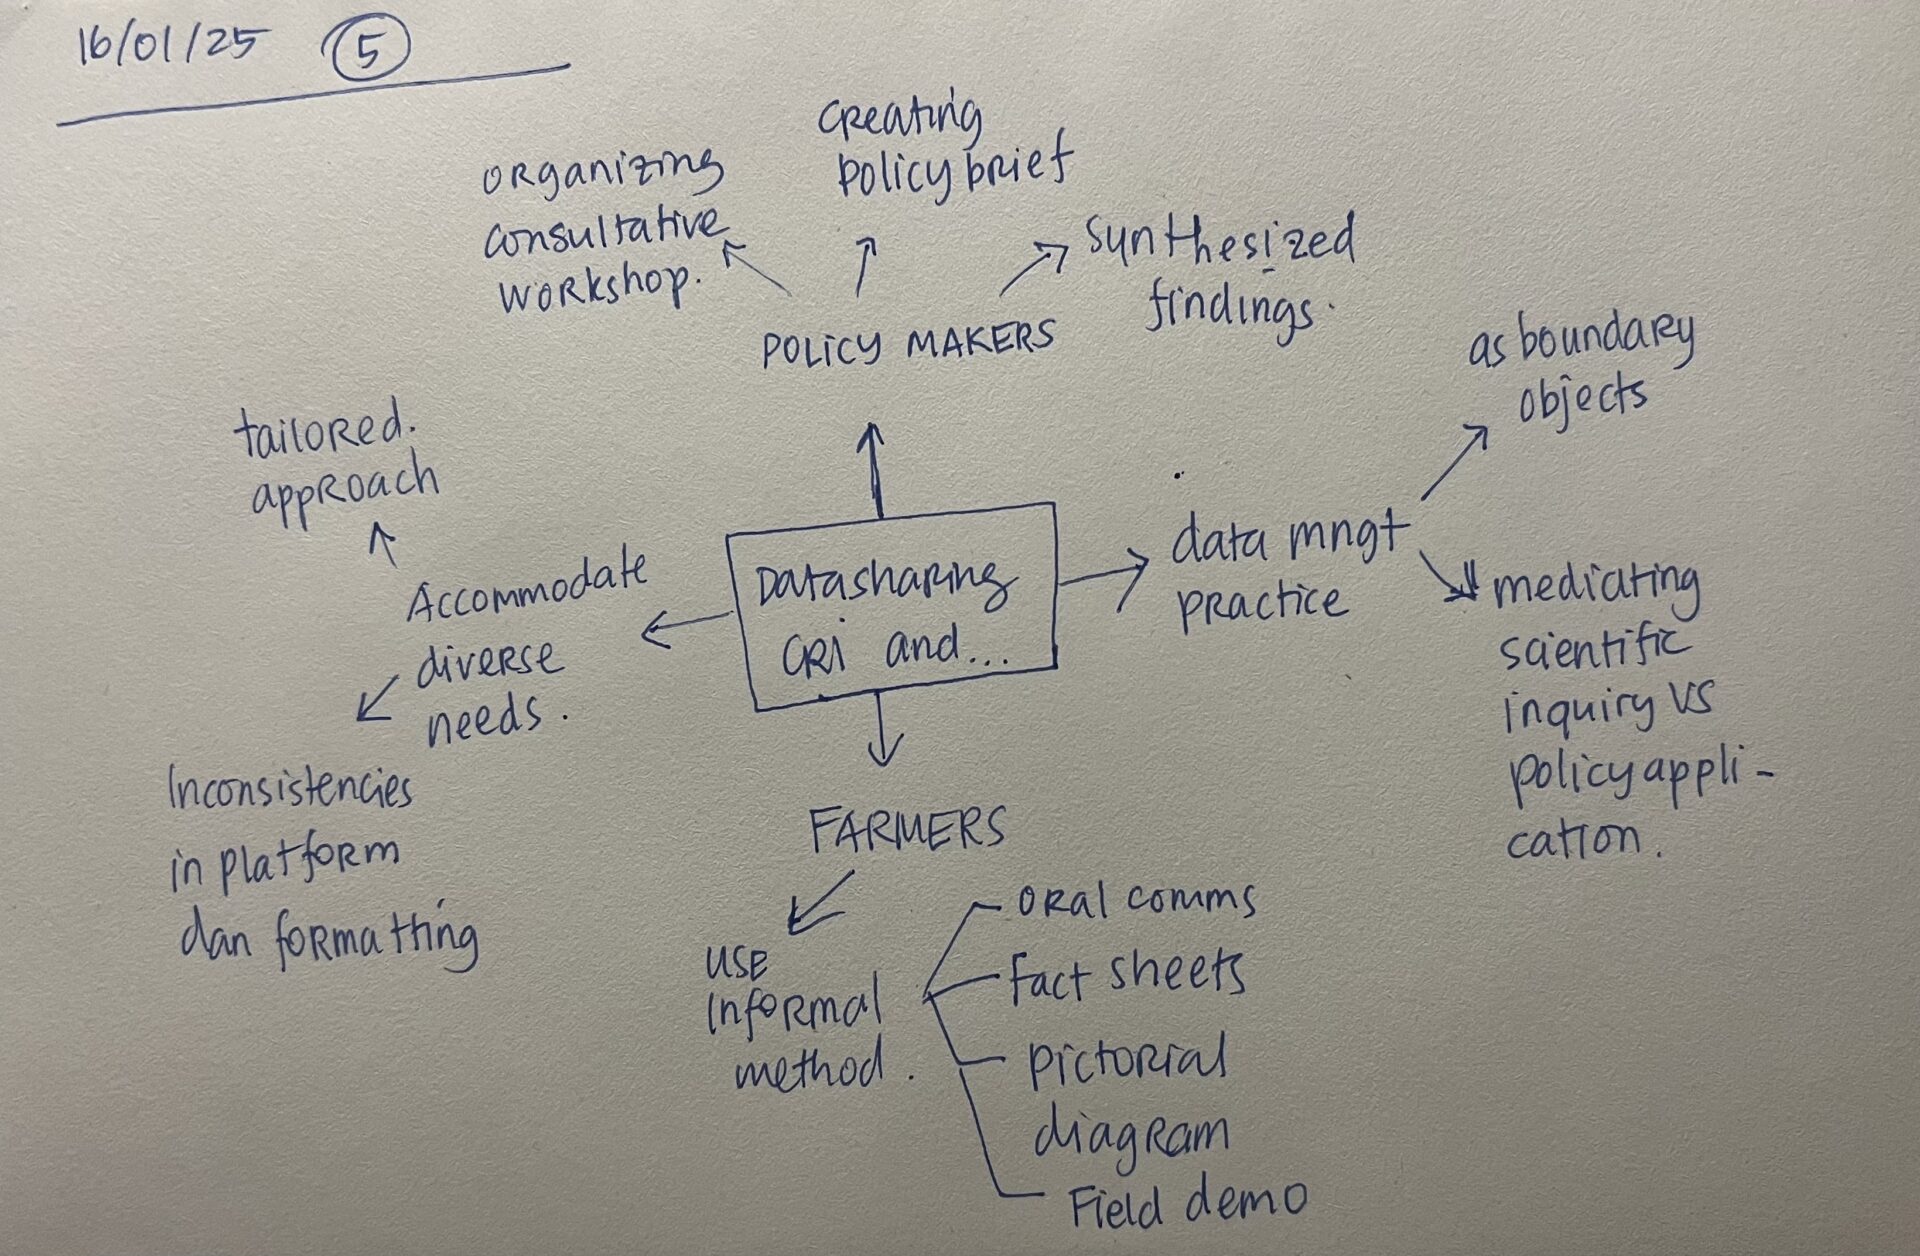 16/01/25 5
organizing
consultative
workshop.
creating
policy brief
synthesized
findings.
POLICY MAKERS
as boundary
objects
tailored.
approach
Accommodate
diverse
needs.
Datasharing
CRI and...
data mngt
practice
mediating
scientific
inquiry vs
policy appli-
cation.
Inconsistencies
in platform
dan formatting
FARMERS
USE
Informal
method.
oral comms
fact sheets
pictorial
diagram
Field demo